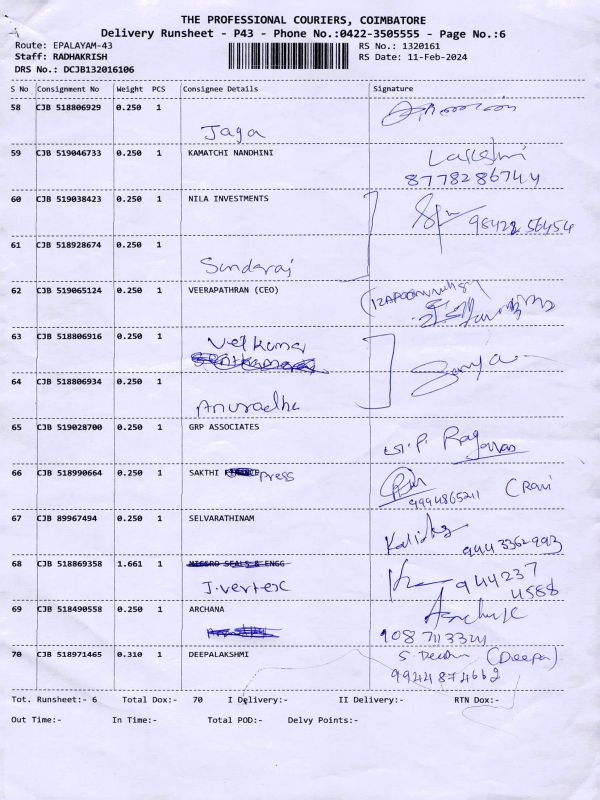 THE PROFESSIONAL COURIERS, COIMBATORE
Delivery Runsheet - P43 - Phone No.:0422-3505555 - Page No.:6
Route: EPALAYAM-43 RS No.: 1320161
Staff: RADHAKRISH RS Date: 11-Feb-2024
DRS No.: DCJB132016106
S No Consignment No Weight PCS Consignee Details Signature
58 CJB 518806929 0.250 1
Jaga
59 CJB 519046733 0.250 1 KAMATCHI NANDHINI Lakshmi
8778286744
60 CJB 519038423 0.250 1 NILA INVESTMENTS
98422 56454
61 CJB 518928674 0.250 1
Sundaraj
62 CJB 519065124 0.250 1 VEERAPATHRAN (CEO)
63 CJB 518806916 0.250 1 Velkumar
64 CJB 518806934 0.250 1
Anuradha
65 CJB 519028700 0.250 1 GRP ASSOCIATES
66 CJB 518990664 0.250 1 SAKTHI Press
9994865211 (Ravi
67 CJB 89967494 0.250 1 SELVARATHINAM
9443362993
68 CJB 518869358 1.661 1 MICRO SEALS & ENGG
J.vertex 944237
4588
69 CJB 518490558 0.250 1 ARCHANA
9087113321
70 CJB 518971465 0.310 1 DEEPALAKSHMI (Deepa)
9944874662
Tot. Runsheet:- 6 Total Dox:- 70 I Delivery:- II Delivery:- RTN Dox:-
Out Time:- In Time:- Total POD:- Delvy Points:-